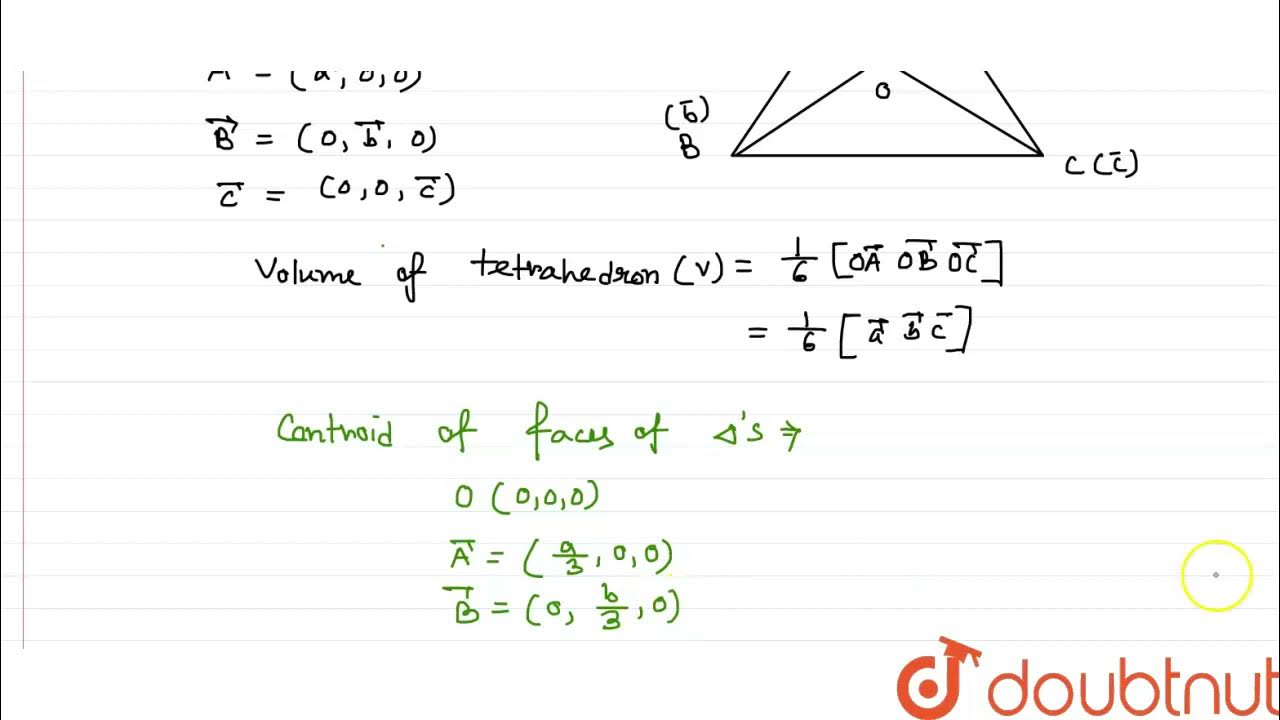 A⃗ = (a, 0, 0)
B⃗ = (0, b⃗, 0)
c̅ = (0, 0, c̅)
(b̅)
B
O
C (c̅)
Volume of tetrahedron (v) = 1/6 [OA⃗ OB⃗ OC⃗]
= 1/6 [a⃗ b⃗ c̅]
Centroid of faces of Δ's ⇒
O (0,0,0)
A⃗ = (a/3, 0, 0)
B⃗ = (0, b/3, 0)
doubtnut